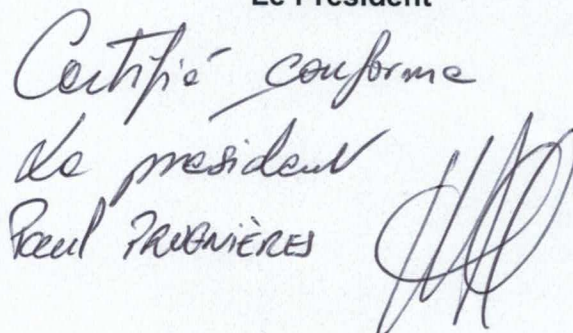 Le Président
Certifié conforme
Le president
Paul PRUGNIÈRES